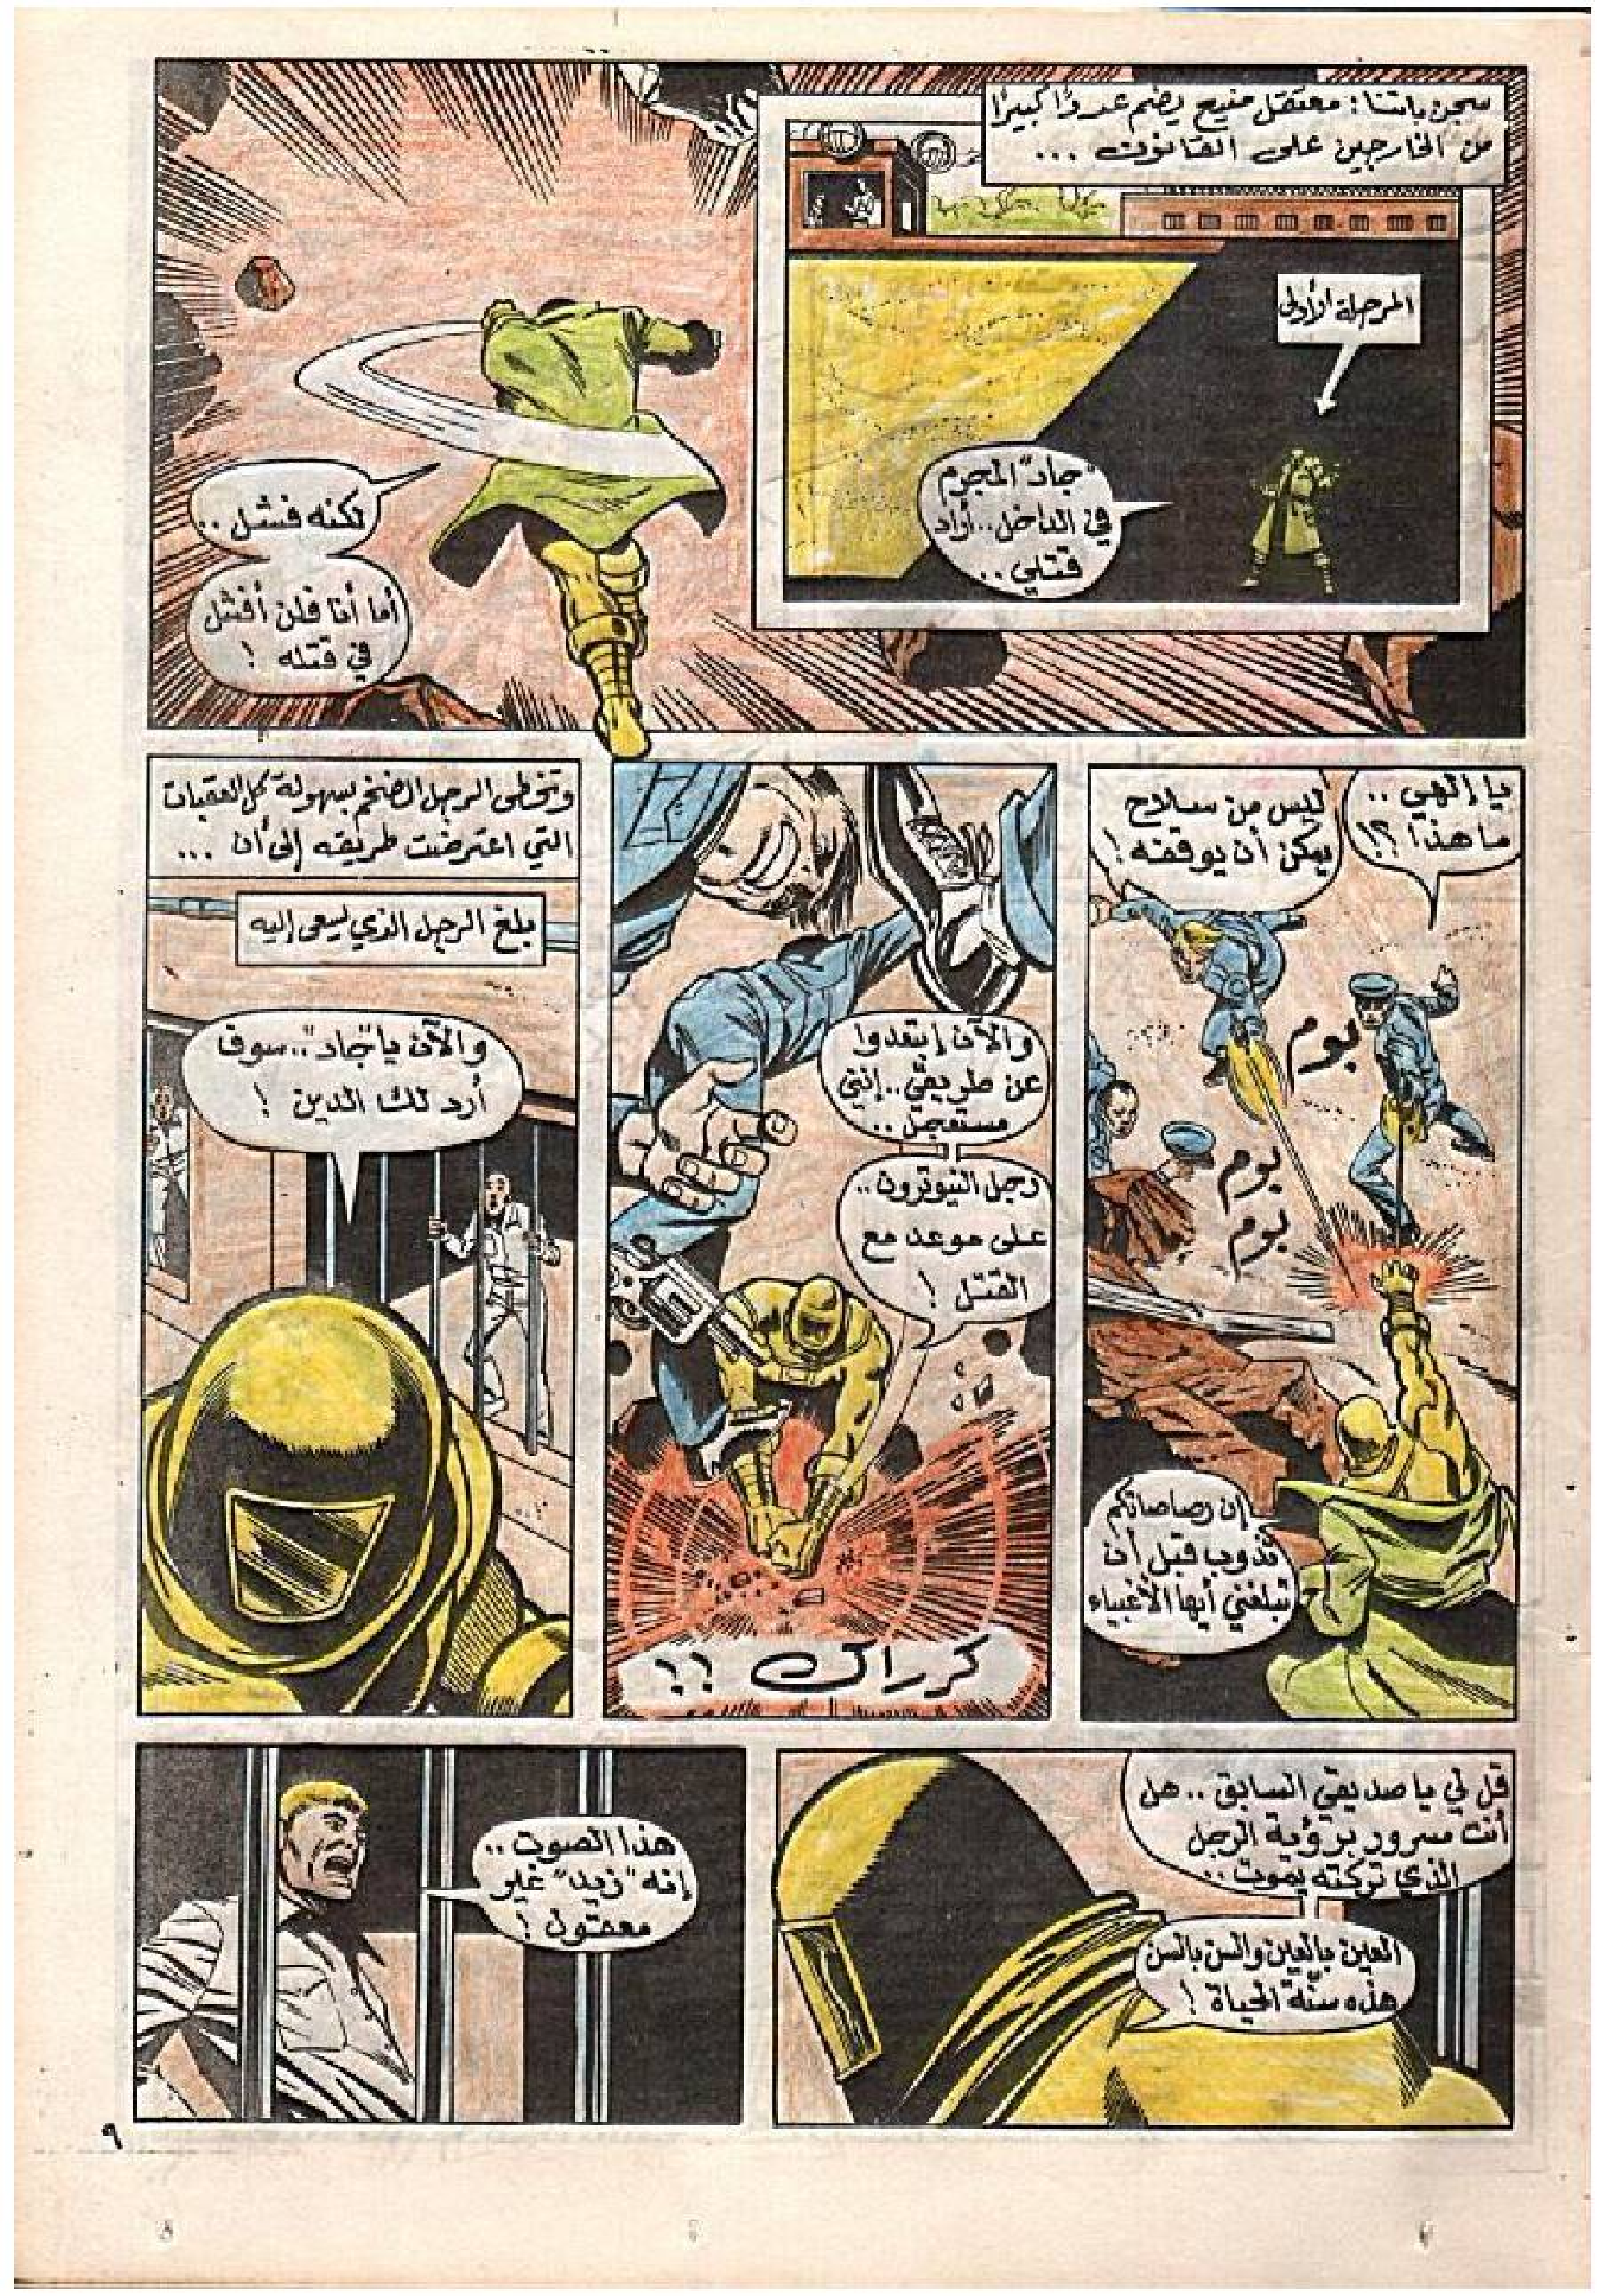 سجن باتنا: معتقل منيع يضم عددًا كبيرًا
من الخارجين على القانون ...
المرحلة الأولى
"جاد" المجرم
في الداخل.. أراد
قتلي..
لكنه فشل..
أما أنا فلن أفشل
في قتله!
يا إلهي..
ما هذا؟!
ليس من سلاح
يمكن أن يوقفه!
بوم
بوم
بوم
إن رصاصاتكم
تذوب قبل أن
تبلغني أيها الأغبياء
والآن إبتعدوا
عن طريقي.. إنني
مستعجل..
رجل النيوترون..
على موعد مع
القتل!
كرراك !!
وتخطى الرجل الضخم بسهولة كل العقبات
التي اعترضت طريقه إلى أن ...
بلغ الرجل الذي يسعى إليه
والآن يا "جاد".. سوف
أرد لك الدين!
قل لي يا صديقي السابق.. هل
أنت مسرور برؤية الرجل
الذي تركته يموت..
العين بالعين والسن بالسن
هذه سنّة الحياة!
هذا الصوت..
إنه "زيد" غير
معقول!
٩